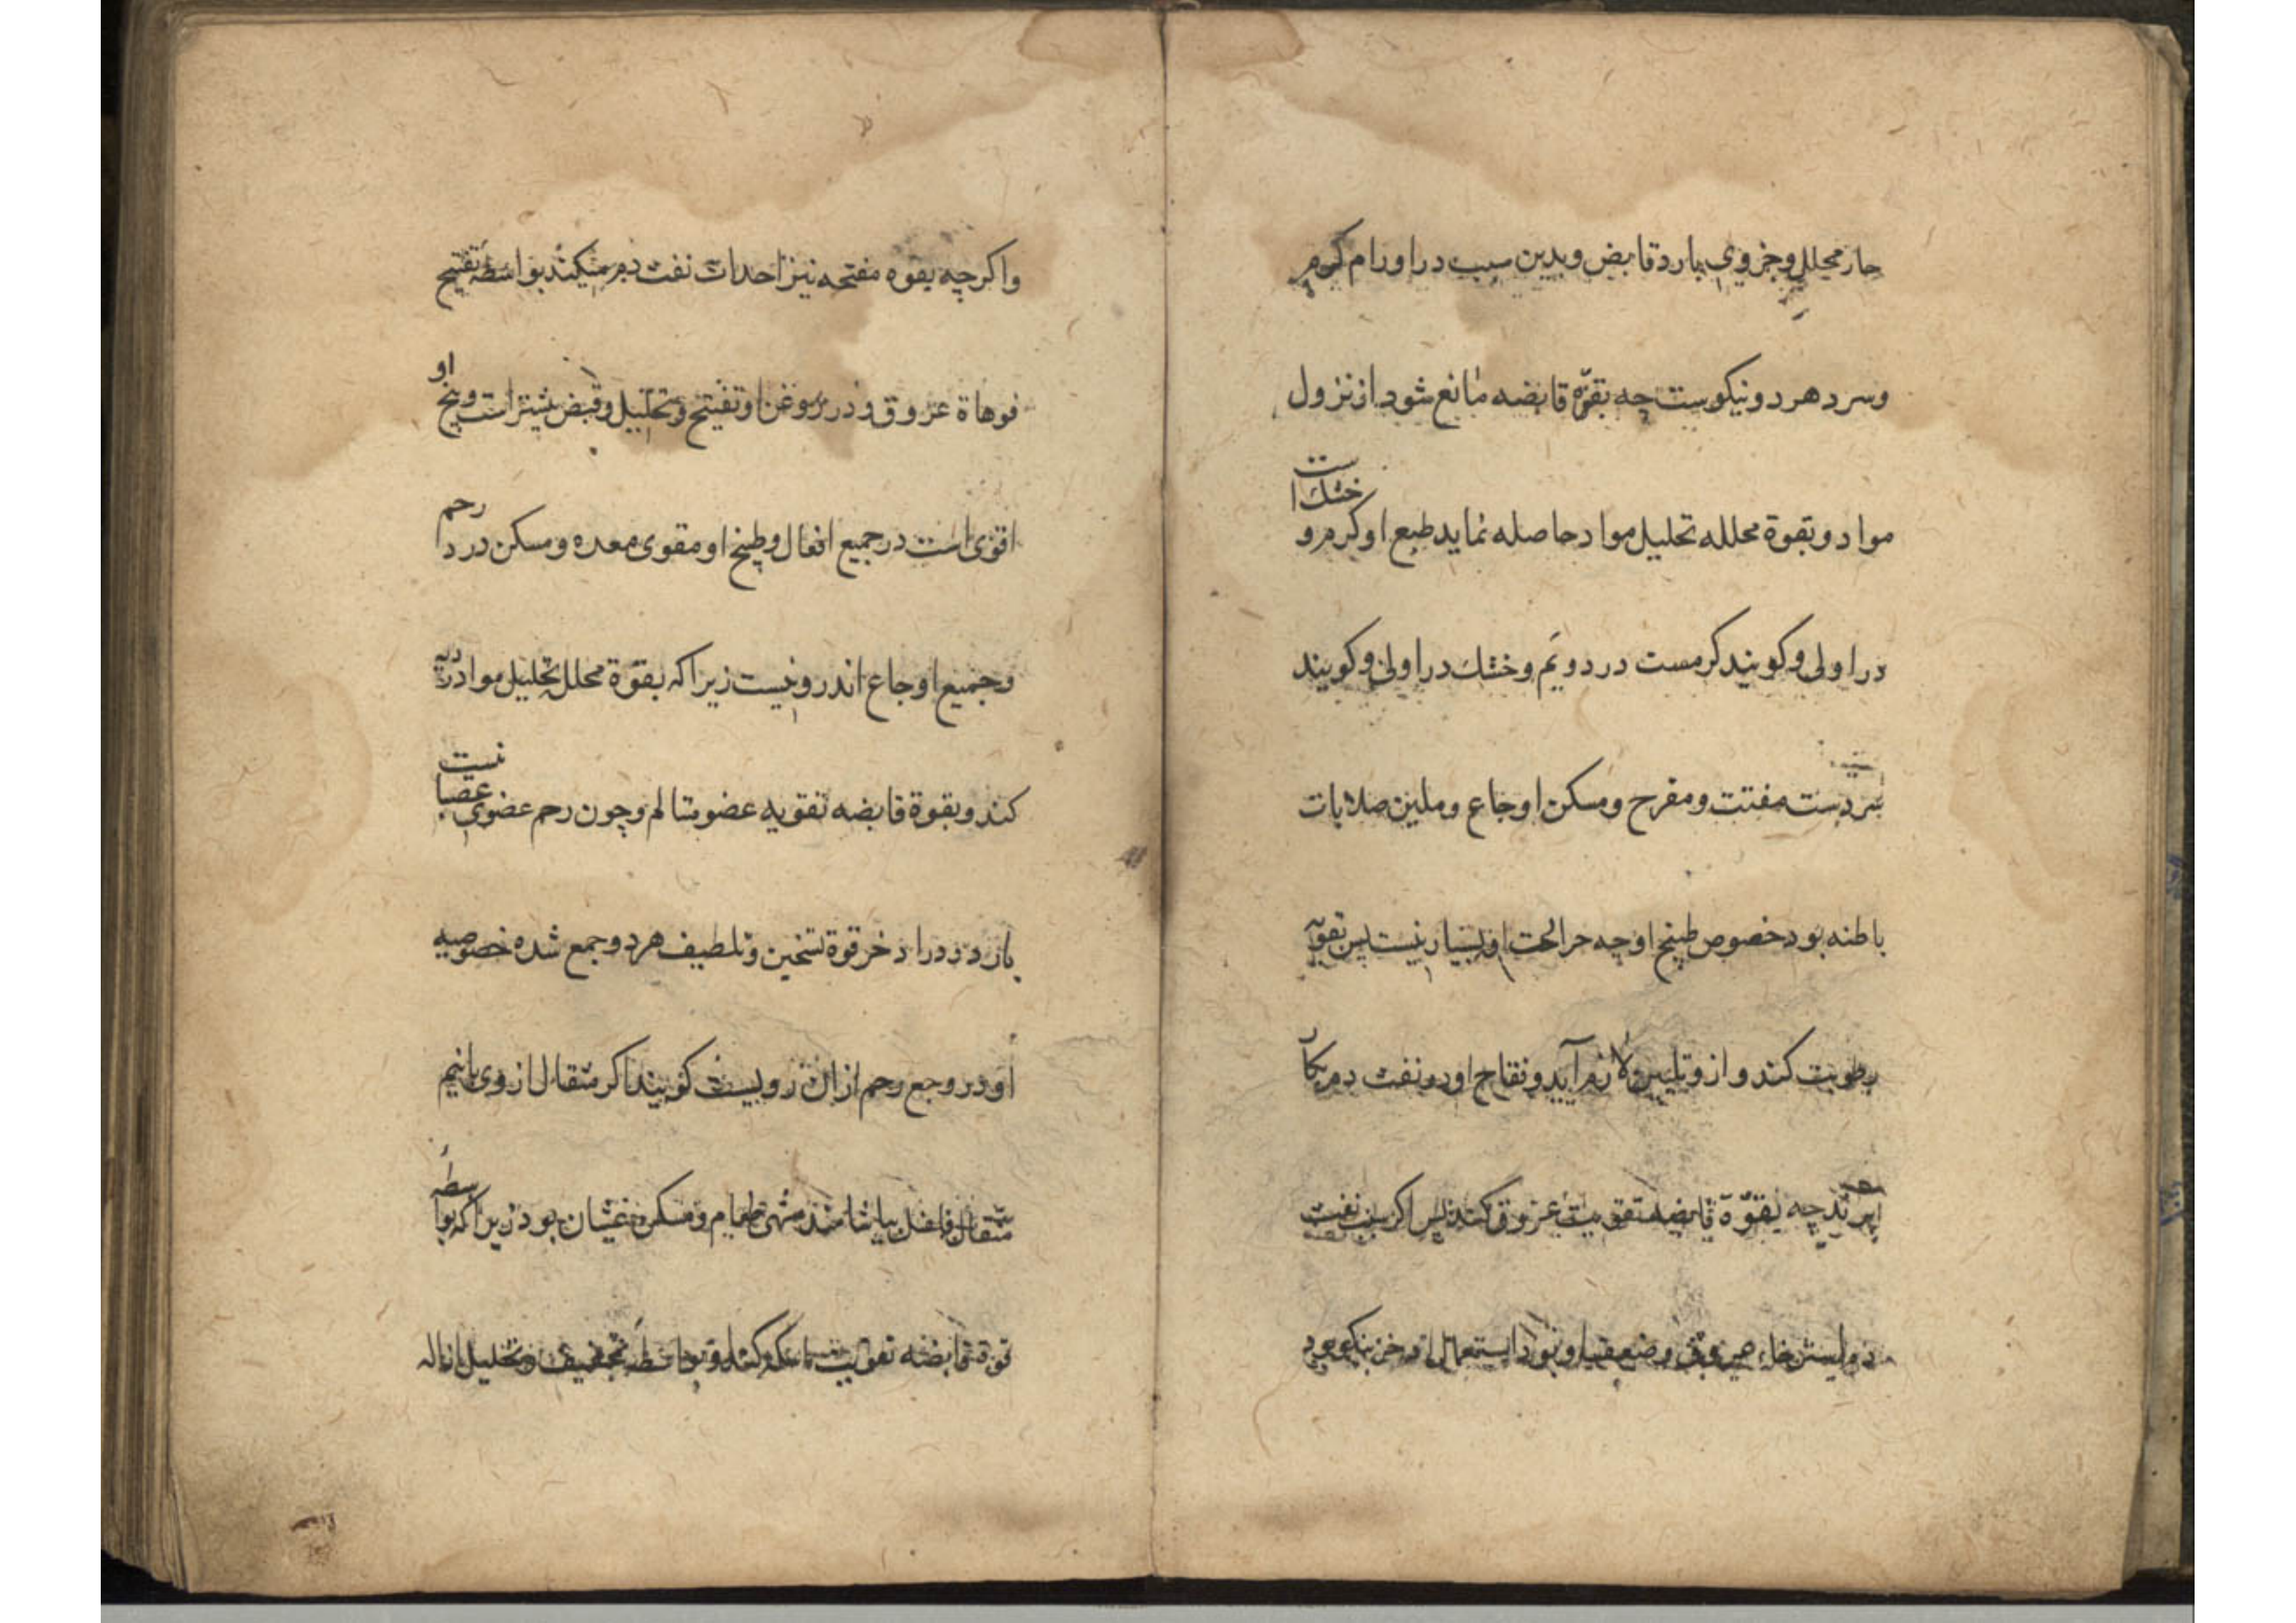 حار محلل و جزوی بارد قابض و بدین سبب در اورام کرم
و سرد هر دو نیکوست چه بقوّه قابضه مانع شود از نزول
مواد و بقوة محلله تحلیل مواد حاصله نماید طبع او کرم و خشك است
در اولی و کویند کرمست در دویم و خشك در اولی و کویند
سردست مفتت و مفرح و مسکن اوجاع و ملین صلابات
باطنه بود خصوص طبیخ او چه حرارت او بسیار نیست پس تقویه
رطوبت کند و ازو تلیین لازم آید و نقاح او در نفث دم بکار
برند چه بقوّة قابضه تقویت عروق کند پس اکر سبب نفث
دم استرخاء عروق و ضعف
و اکرچه بقوه مفتحه نیز احداث نفث دم میکند بواسطه تفتیح
فوهاة عروق و در روغن او تفتیح و تحلیل و قبض بیشتر است و بیخ او
اقوی است در جمیع افعال و طبیخ او مقوی معده و مسکن درد رحم
و جمیع اوجاع اندرونیست زیرا که بقوّة محلله تحلیل مواد ردیه
کند و بقوة قابضه تقویه عضو متالم و چون رحم عضوی عصبانیست
بارد و در اذخر قوة تسخین و تلطیف هر دو جمع شده خصوصیه
او در وجع رحم ازان روست کویند اکر مثقال از وی با نیم
مثقال فلفل بیاشامند مشهی طعام و مسکن غثیان بود زیرا که بواسطه
قوة قابضه تقویت ماسکه کند و بواسطه تجفیف و تحلیل ازاله